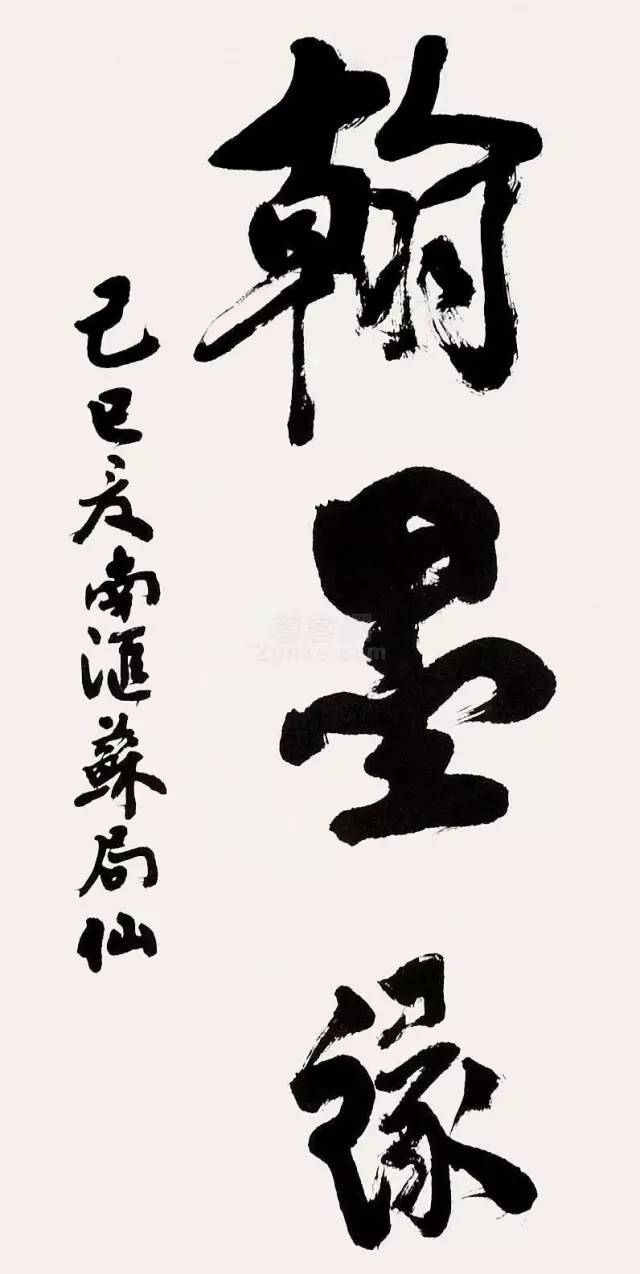 翰墨缘
己巳夏南汇苏局仙
尊客网
Zunke.com